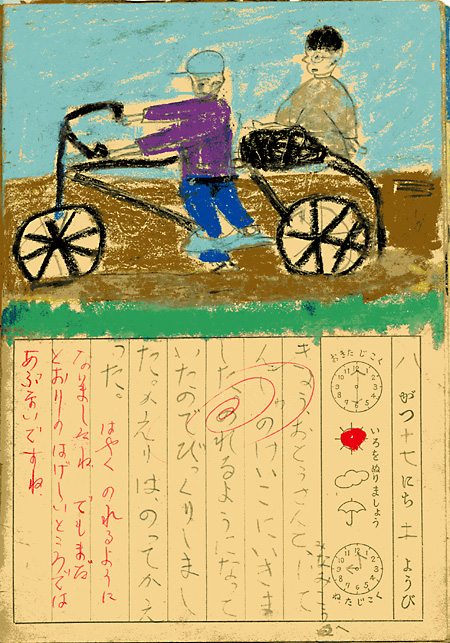 八がつ十七にち土ようび
おきたじこく
いろをぬりましょう
ねたじこく
きょう、おとうさんと、じて
のけいこにいきま
した。のれるようになって
いたのでびっくりしまし
た。かえりは、のってかえ
った。
はやく のれるように
なりましたね でもまだ
とおりのはげしいところでは
あぶないですね